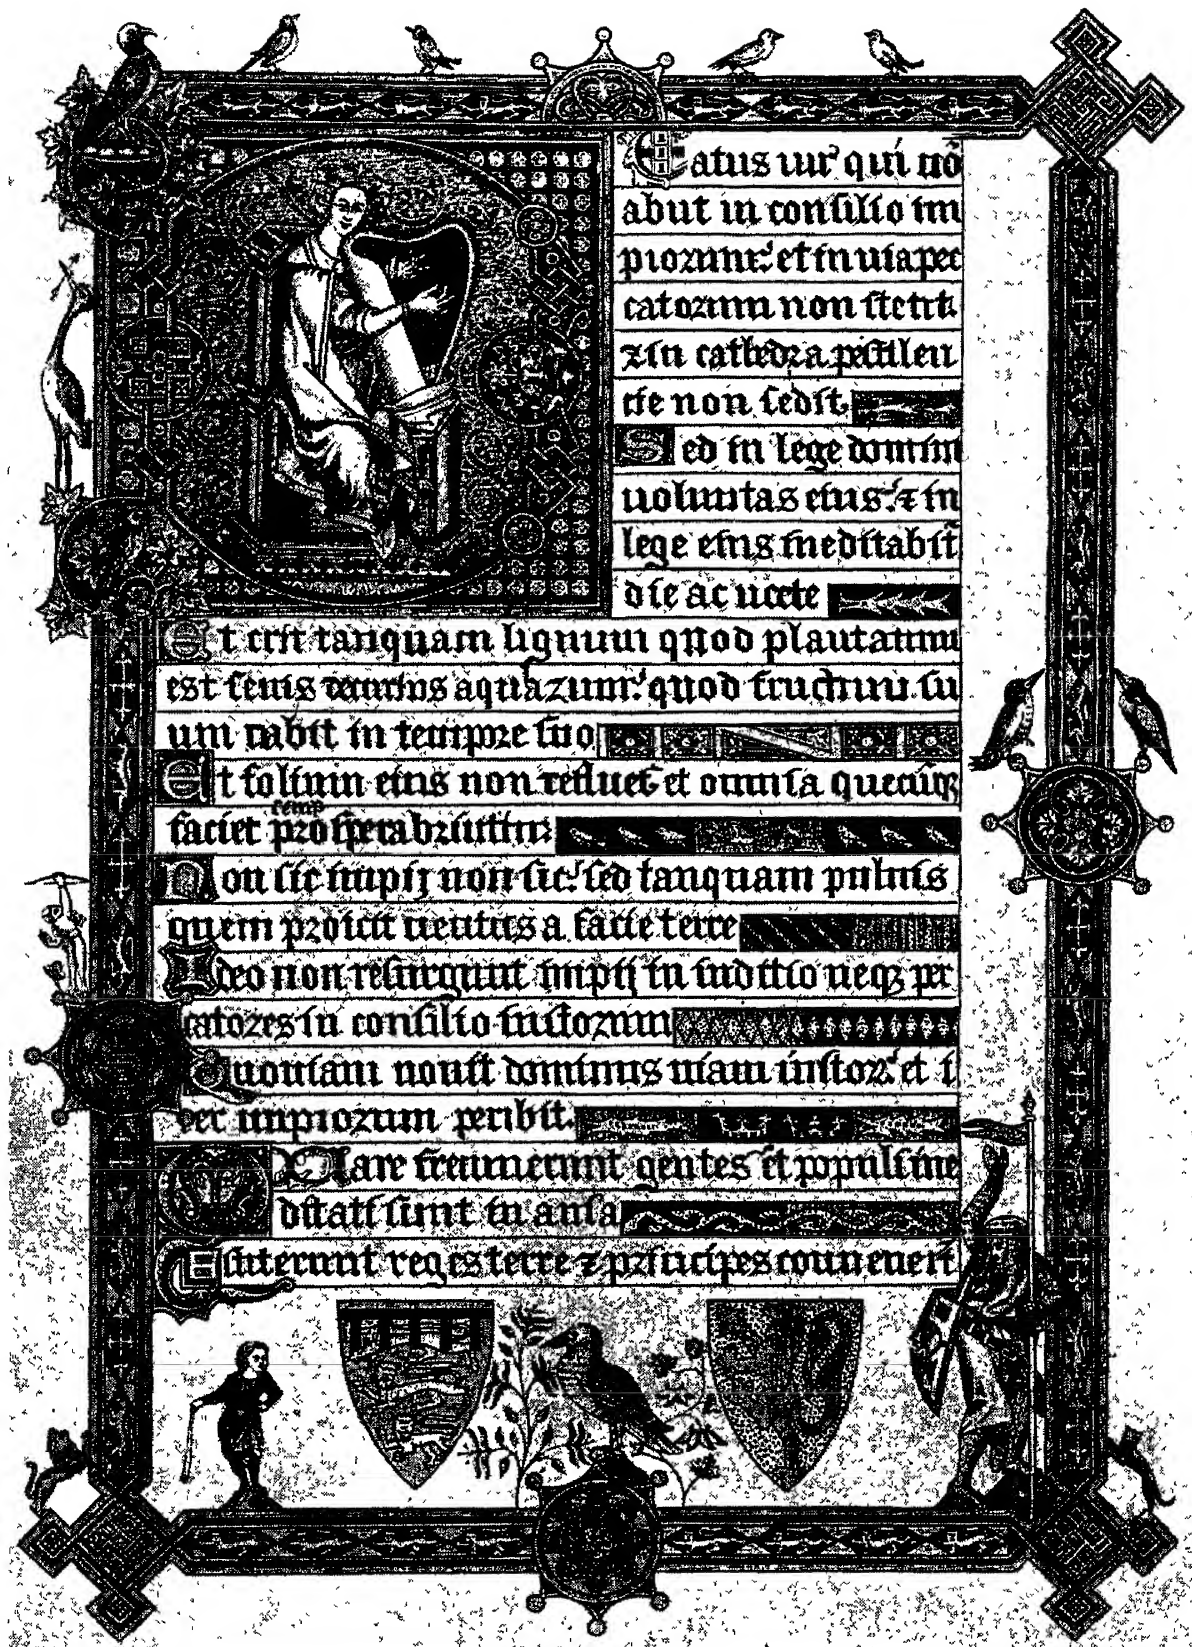 Eatus uir qui nō
abiit in consilio im
piorum: et in uia pec
catorum non stetit
⁊ in cathedra pestilen
tie non sedit.
Sed in lege domini
uoluntas eius: ⁊ in
lege eius meditabit̄
die ac nocte
Et erit tanquam lignum quod plantatum
est secus decursus aquarum: quod fructum su
um dabit in tempore suo
Et folium eius non defluet et omnia quecūq̧
faciet semp prosperabuntur
Non sic impij non sic: sed tanquam puluis
quem proicit uentus a facie terre
Ideo non resurgunt impij in iudicio neq̧ pec
catores in consilio iustorum
Quoniam nouit dominus uiam iustoꝝ: et i
ter impiorum peribit.
Quare fremuerunt gentes et populi me
ditati sunt in ania
Astiterunt reges terre ⁊ principes conuener̄t